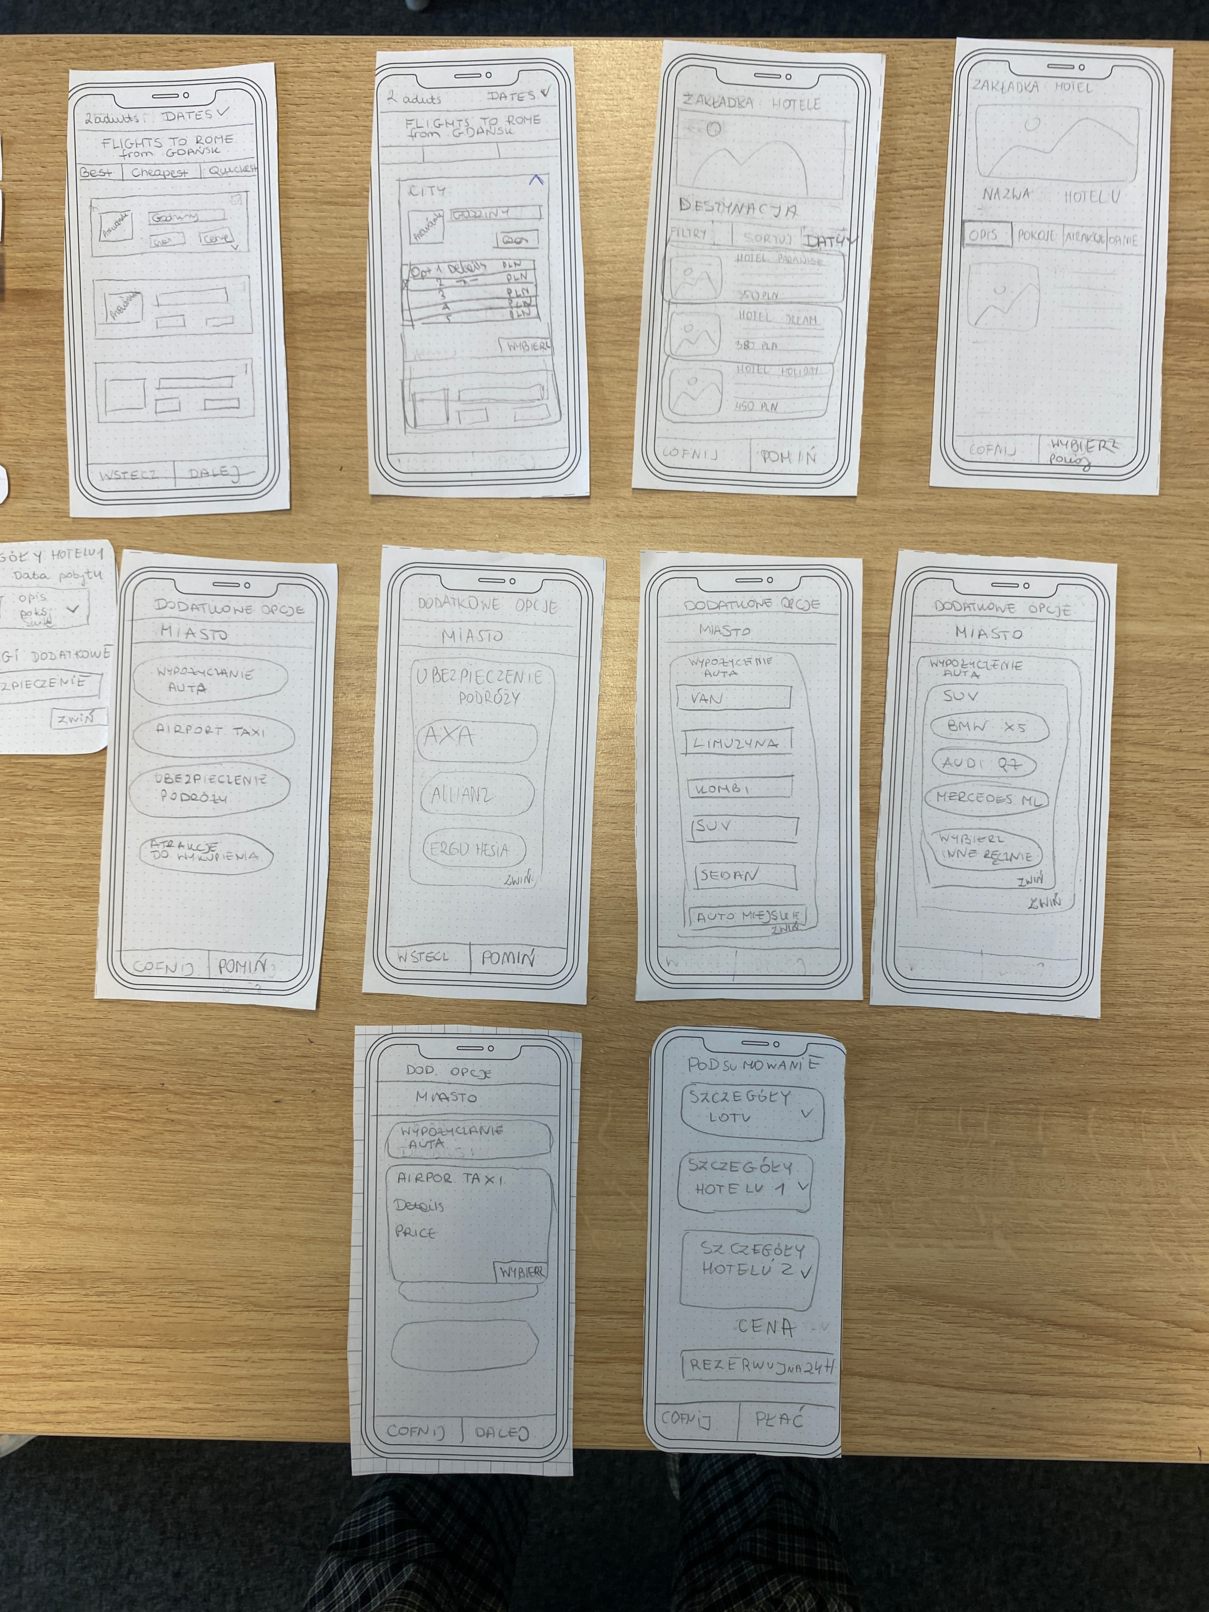 2 adults: DATES
FLIGHTS TO ROME
from GDAŃSK
Best Cheapest Quickest
Godziny
Cena
WSTECZ DALEJ
2 aduts DATES
FLIGHTS TO ROME
from GDAŃSK
CITY
GODZINY
Opt 1 Details PLN
2 PLN
3 PLN
4 PLN
5 PLN
WYBIERZ
ZAKŁADKA HOTELE
DESTYNACJA
FILTRY SORTUJ DATY
HOTEL PARADISE
350 PLN
HOTEL
380 PLN
HOTEL HOLIDAY
450 PLN
COFNIJ POMIŃ
ZAKŁADKA HOTEL
NAZWA HOTELU
OPIS POKOJE
COFNIJ WYBIERZ
POKÓJ
GÓŁY HOTELU 1
Data pobytu
opis
GI DODATKOWE
ZPIECZENIE
ZWIŃ
DODATKOWE OPCJE
MIASTO
WYPOŻYCZANIE
AUTA
AIRPORT TAXI
UBEZPIECZENIE
PODRÓŻY
ATRAKCJE
DO WYKUPIENIA
COFNIJ POMIŃ
DODATKOWE OPCJE
MIASTO
UBEZPIECZENIE
PODRÓŻY
AXA
ALLIANZ
ERGO HESIA
ZWIŃ
WSTECZ POMIŃ
DODATKOWE OPCJE
MIASTO
WYPOŻYCZENIE
AUTA
VAN
LIMUZYNA
KOMBI
SUV
SEDAN
AUTO MIEJSKIE
ZWIŃ
DODATKOWE OPCJE
MIASTO
WYPOŻYCZENIE
AUTA
SUV
BMW X5
AUDI Q7
MERCEDES ML
WYBIERZ
INNE RĘCZNIE
ZWIŃ
ZWIŃ
DOD. OPCJE
MIASTO
WYPOŻYCZANIE
AUTA
AIRPOR TAXI
Details
PRICE
WYBIERZ
COFNIJ DALEJ
PODSUMOWANIE
SZCZEGÓŁY
LOTU
SZCZEGÓŁY
HOTELU 1
SZCZEGÓŁY
HOTELU 2
CENA
REZERWUJ NA 24H
COFNIJ PŁAĆ